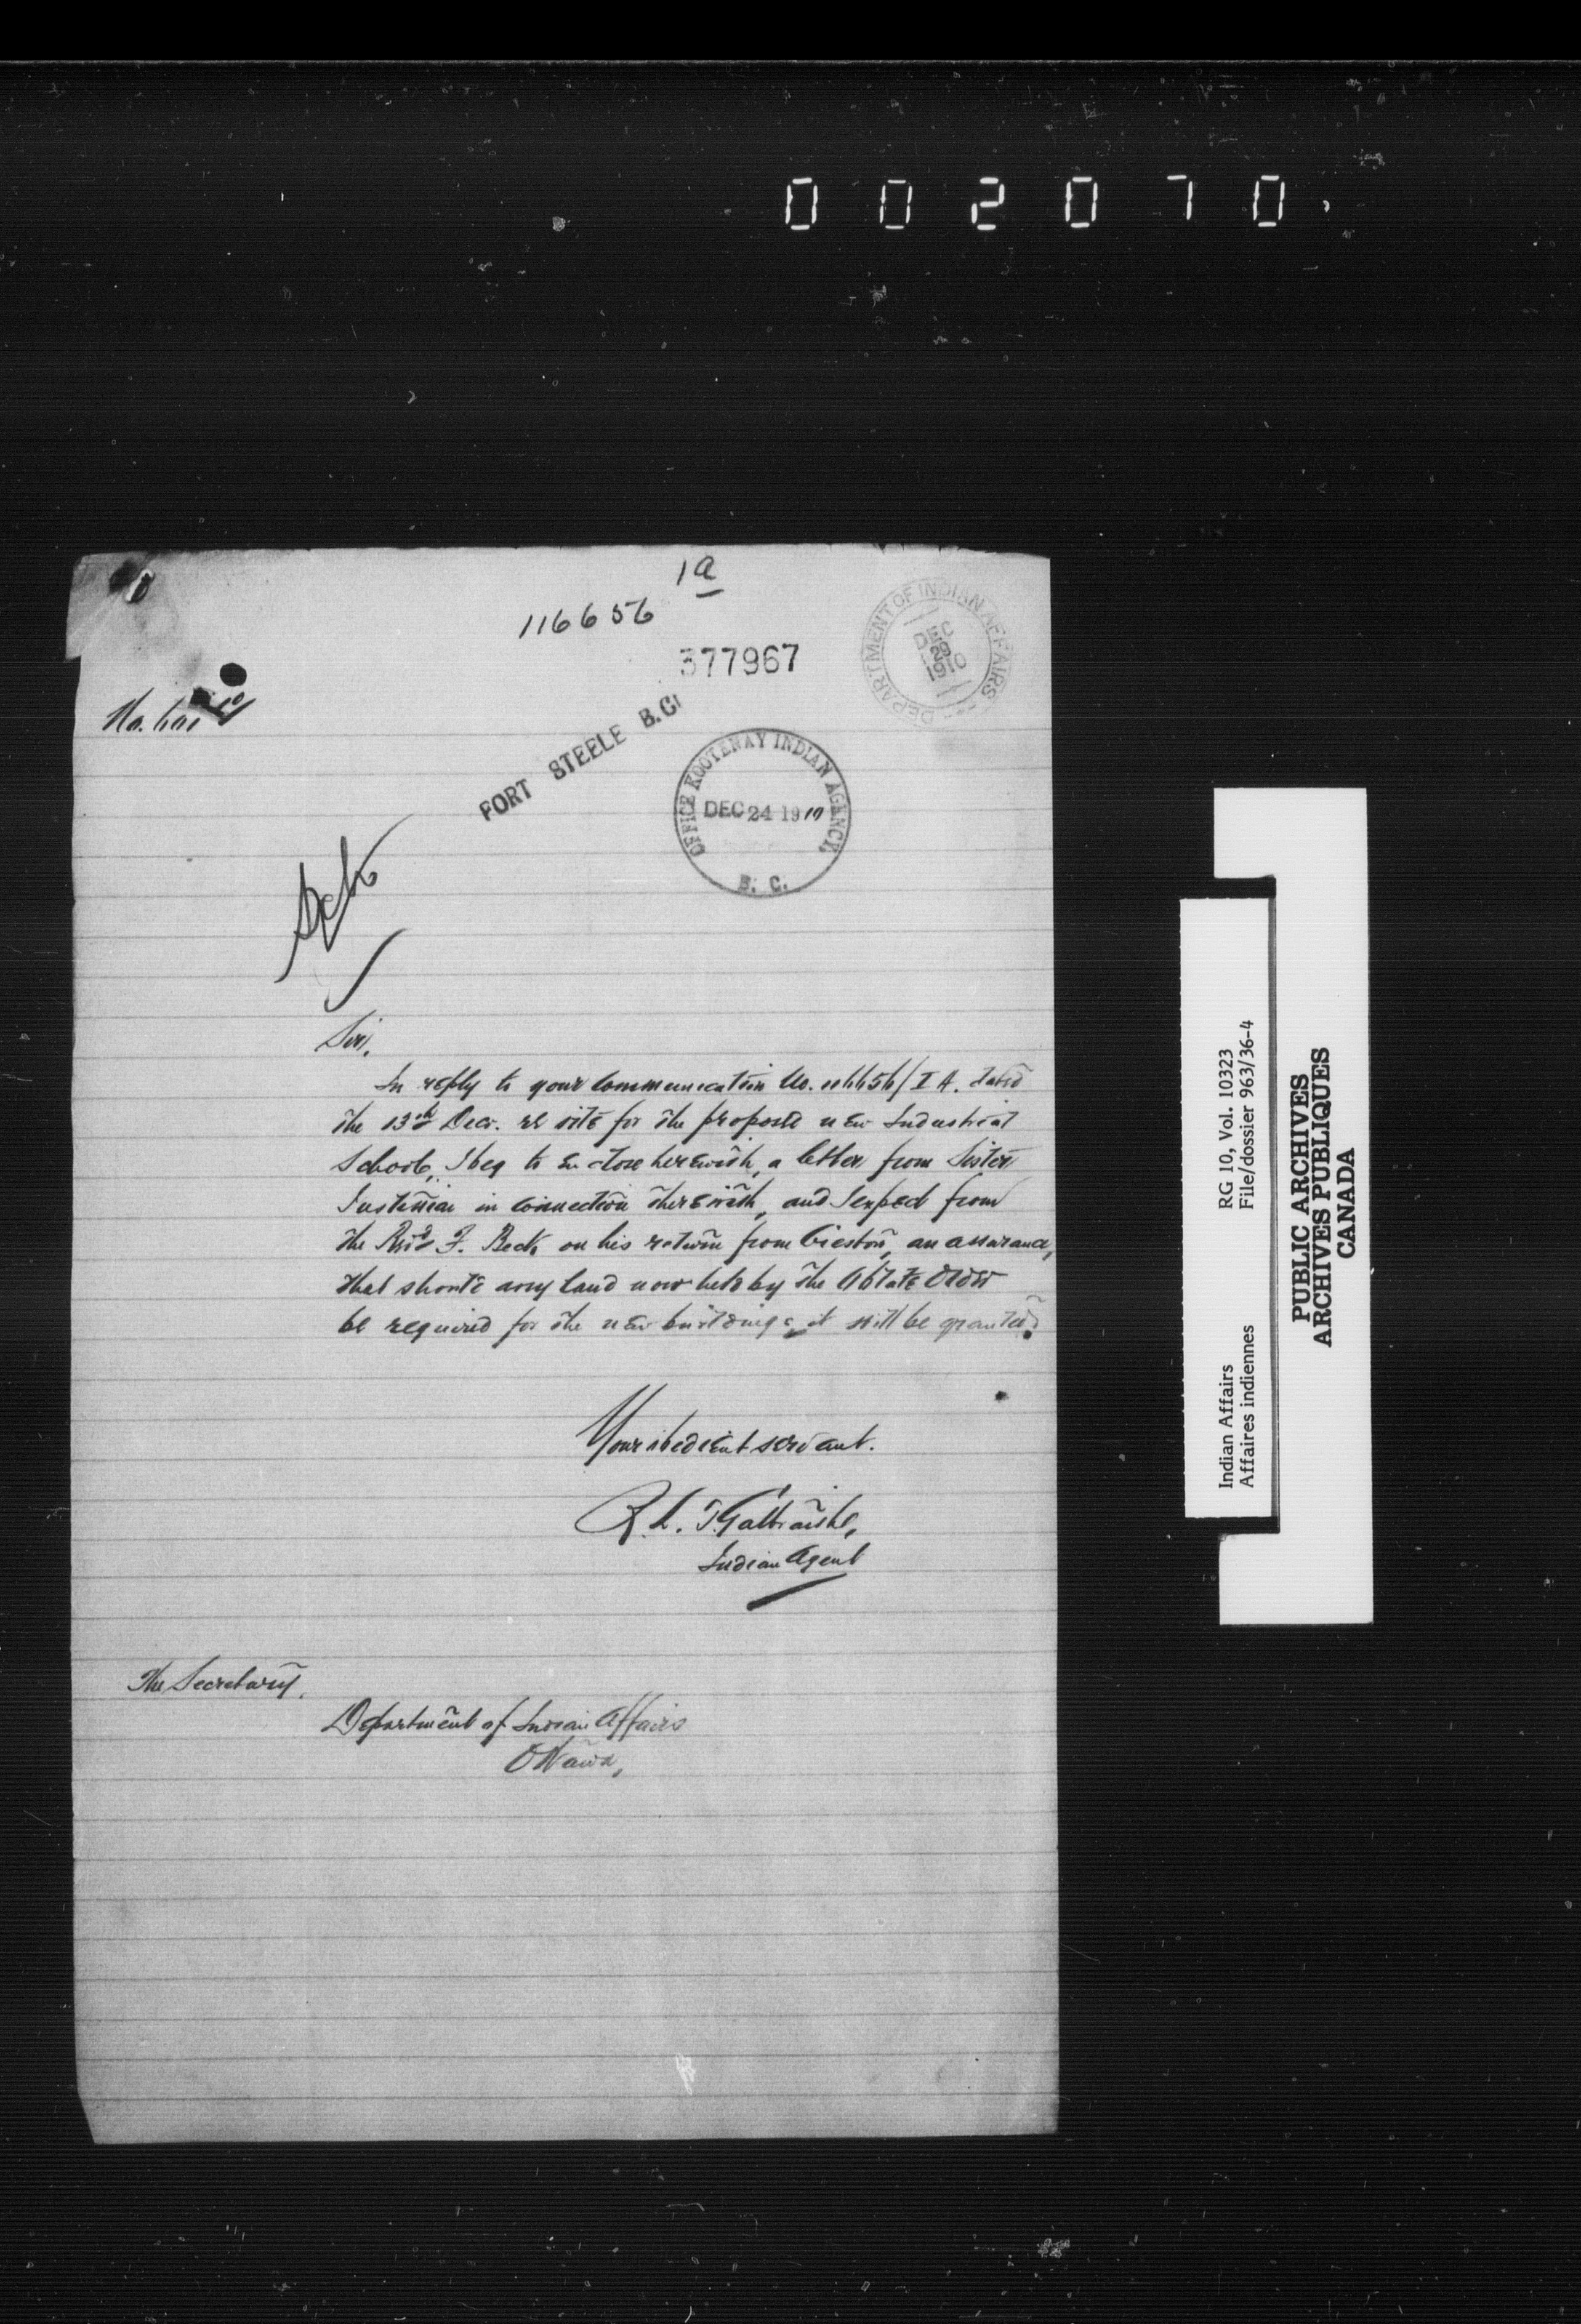 002070
1a
116656
377967
DEPARTMENT OF INDIAN AFFAIRS
DEC 29 1910
No.
FORT STEELE B.C.
OFFICE KOOTENAY INDIAN AGENCY,
DEC 24 1910
B. C.
Sir,
In reply to your Communication No. 116656/1A. dated
the 13th Decr. re site for the proposed new Industrial
School, I beg to enclose herewith, a letter from Sister
Justinian in connection therewith, and I expect from
the Revd F. Beck on his return from Creston, an assurance,
that should any land now held by the Oblate Order
be required for the new buildings, it will be granted.
Your obedient servant.
R. L. T. Galbraith,
Indian Agent
The Secretary,
Department of Indian Affairs
Ottawa,
Indian Affairs RG 10, Vol. 10323
Affaires indiennes File/dossier 963/36-4
PUBLIC ARCHIVES
ARCHIVES PUBLIQUES
CANADA